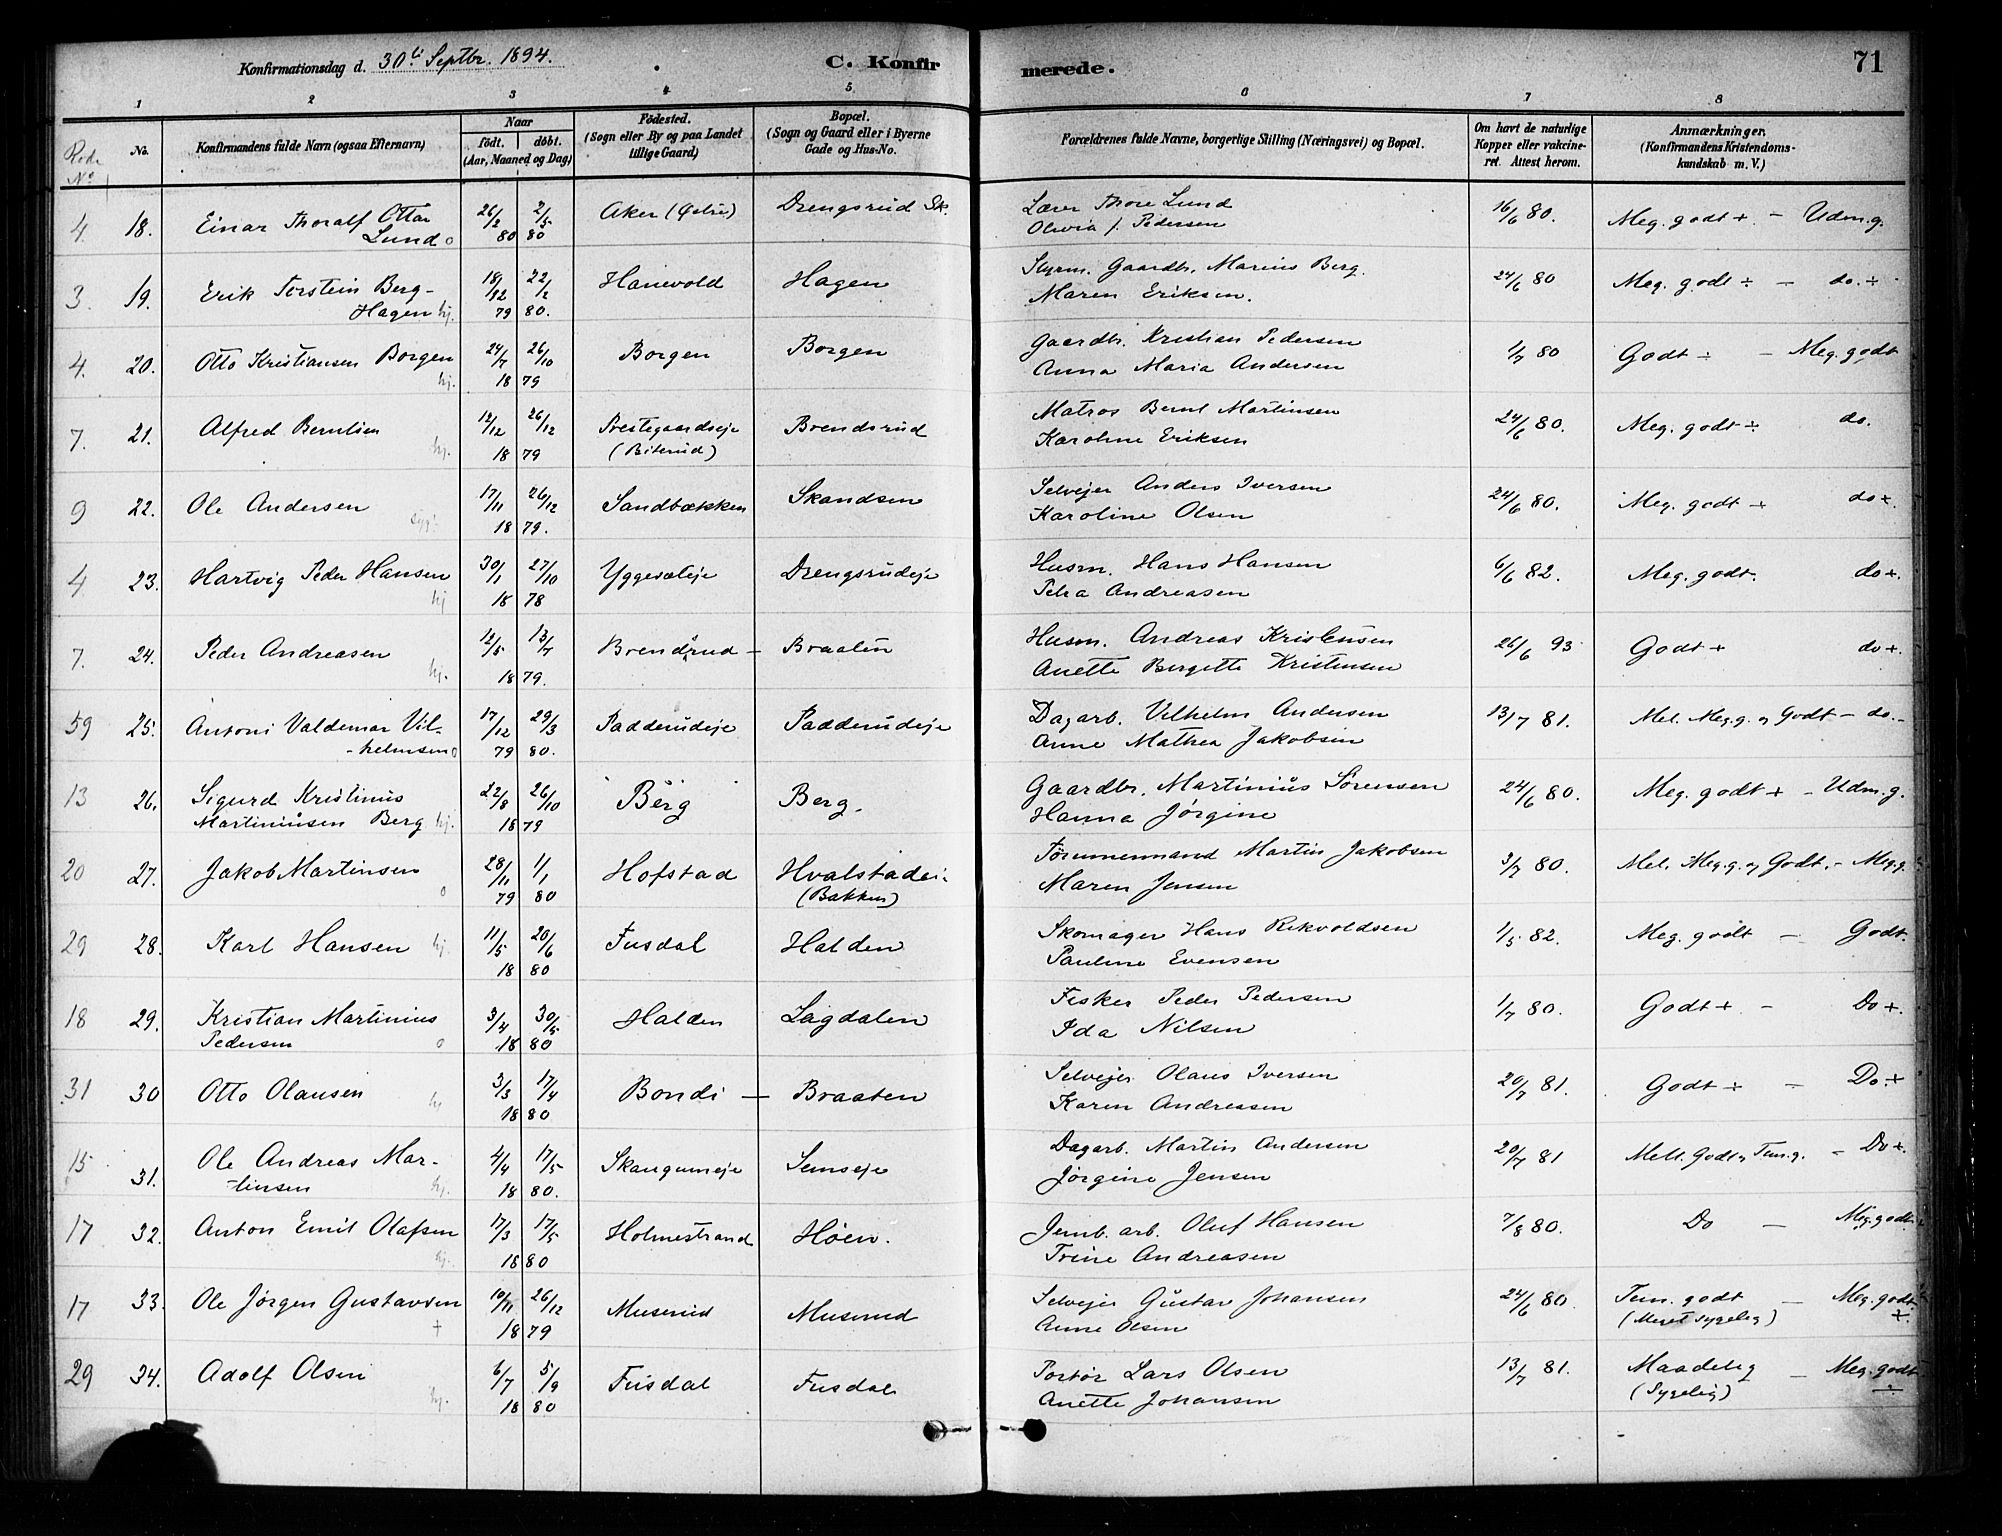 Konfirmationsdag d. 30te Septbr. 1894.
C. Konfirmerede.
71
1 2 3 4 5 6 7 8
Rode No
No.
Konfirmandens fulde Navn (ogsaa Efternavn)
Naar
født. døbt.
(Aar, Maaned og Dag)
Fødested.
(Sogn eller By og paa Landet
tillige Gaard)
Bopæl.
(Sogn og Gaard eller i Byerne
Gade og Hus-No.
Forældrenes fulde Navne, borgerlige Stilling (Næringsvei) og Bopæl.
Om havt de naturlige
Kopper eller vakcine-
ret. Attest herom.
Anmærkninger.
(Konfirmandens Kristendoms-
kundskab m. V.)
4. 18. Einar Thoralf Ottar 26/2 2/5 Aker (Østre) Drengsrud Sk. Lærer Thore Lund 16/6 80. Meg. godt + - Udm. g.
Lund o 80 80 Olivia f. Pedersen
3. 19. Erik Torstein Berg- 18/12 22/2 Hanevold Hagen Styrm. Gaardbr. Marius Berg. 24/6 80 Meg. godt ÷ - do. ÷
Hagen hj. 79 80. Maren Eriksen.
4. 20. Otto Kristiansen Borgen 24/7 26/10 Borgen Borgen Gaardbr. Kristian Pedersen 1/7 80 Godt ÷ - Meg. godt
hj. 18 79 Anna Maria Andersen
7. 21. Alfred Berntsen 12/12 26/12 Prestegaardseje Brendsrud Matros Bernt Martinsen 24/6 80. Meg. godt ÷ do.
hj. 18 79 (Biterud) Karoline Eriksen
9 22. Ole Andersen 17/11 26/12 Sandbækken Skandsen Selvejer Anders Iversen 24/6 80. Meg. godt + do +.
18 79. Karoline Olsen
4 23. Hartvig Peder Hansen 30/1 27/10 Yggesæteje Drengsrudeje Husm. Hans Hansen 6/6 82. Meg. godt. do +.
hj 18 78 Petra Andreasen
7. 24. Peder Andreasen 12/5 13/7 Brendsrud - Braaten Husm. Andreas Kristensen 26/6 93 Godt + do +.
hj. 18 79. Anette Bergette Kristensen
59 25. Antoni Valdemar Vil- 17/12 29/3 Padderudeje Padderudeje Dagarb. Vilhelm Andersen 13/7 81. Mel. Meg. g. og Godt - do. -
-helmsen o 79 80. Anne Mathea Jakobsen
13 26. Sigurd Kristinus 22/8 26/10 Berg Berg. Gaardbr. Martinius Sørensen 24/6 80. Meg. godt + - Udm. g.
Martiniusen Berg hj. 18 79 Hanna Jørgine
20 27. Jakob Martinsen 28/11 1/1 Hofstad Hvalstadei. Tømmermand Martin Jakobsen 3/7 80. Mel. Meg. g. og Godt. - Meg. g.
o 79 80 (Bakken) Maren Jensen
29 28. Karl Hansen hj. 11/5 20/6 Fusdal Halden Skomager Hans Rikvoldsen 1/5 82. Meg. godt - Godt.
18 80 Pauline Evensen
18 29. Kristian Martinius 3/4 30/5 Halden Lagdalen Fisker Peder Pedersen 1/7 80. Godt + - Do +.
Pedersen o 18 80 Ida Nilsen
31 30 Otto Olausen 3/3 17/4 Bondi - Braaten Selvejer Olaus Iversen 20/7 81. Godt + - Do +
hj 18 80 Karen Andreasen
15 31. Ole Andreas Mar- 4/4 17/5 Skaugumeje Semseje Dagarb. Martin Andersen 20/7 81 Mell. Godt og Tem. g. - Do +.
tinsen hj. 18 80. Jørgine Jensen
17 32. Anton Emil Olafsen 17/3 17/5 Holmestrand Høen. Jernb. arb. Oluf Hansen 7/8 80. Do - Meg. godt +
hj. 18 80 Trine Andreasen
17 33. Ole Jørgen Gustavsen 10/11 26/12 Muserud Muserud Selvejer Gustav Johansen 24/6 80. Tem. godt - Meg. godt
+ 18 79 Anne Olsen (Meget sygelig) +.
29 34. Adolf Olsen 6/7 5/9 Fusdal Fusdal Portør Lars Olsen 13/7 81. Maadelig - Meg. godt
hj. 18 80 Anette Johansen (Sygelig) ÷